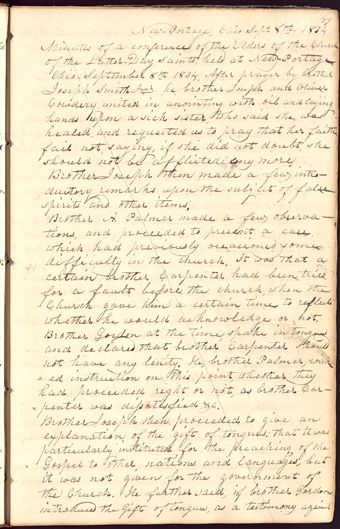 New Portage, Ohio Sept 8th, 1834
Minutes of a conference of the Elders of the Church
of the Latter-Day Saints held at New Portage
Ohio, September 8th 1834. After prayer by brother
Joseph Smith Jr. he brother Joseph and Oliver
Cowdery united in anointing with oil and laying
hands upon a sick sister, who said she was
healed, and requested us to pray that her faith
fail not, saying, if she did not doubt she
should not be afflicted any more,
Brother Joseph then made a few intro-
ductory remarks upon the subject of false
spirits and other items,
Brother A. Palmer made a few observa-
tions, and proceeded to present a case
which had previously occasioned some
difficulty in the church. It was that a
certain brother Carpenter had been tried
for a fault before the church when the
Church gave him a certain time to reflect
whether he would acknowledge or not,
Brother Gordon at the time spake in tongues
and declared that brother Carpenter should
not have any lenity. He, brother Palmer, wish
=ed instruction on this point whether they
had proceeded right or not, as brother Car-
penter was dissatisfied &c,
Brother Joseph then proceeded to give an
explanation of the gift of tongues: that it was
particularly instituted for the preaching of the
Gospel to other nations and languages, but
it was not given for the government of
the Church. He further said, if brother Gordon
introduced the Gift of tongues, as a testimony against